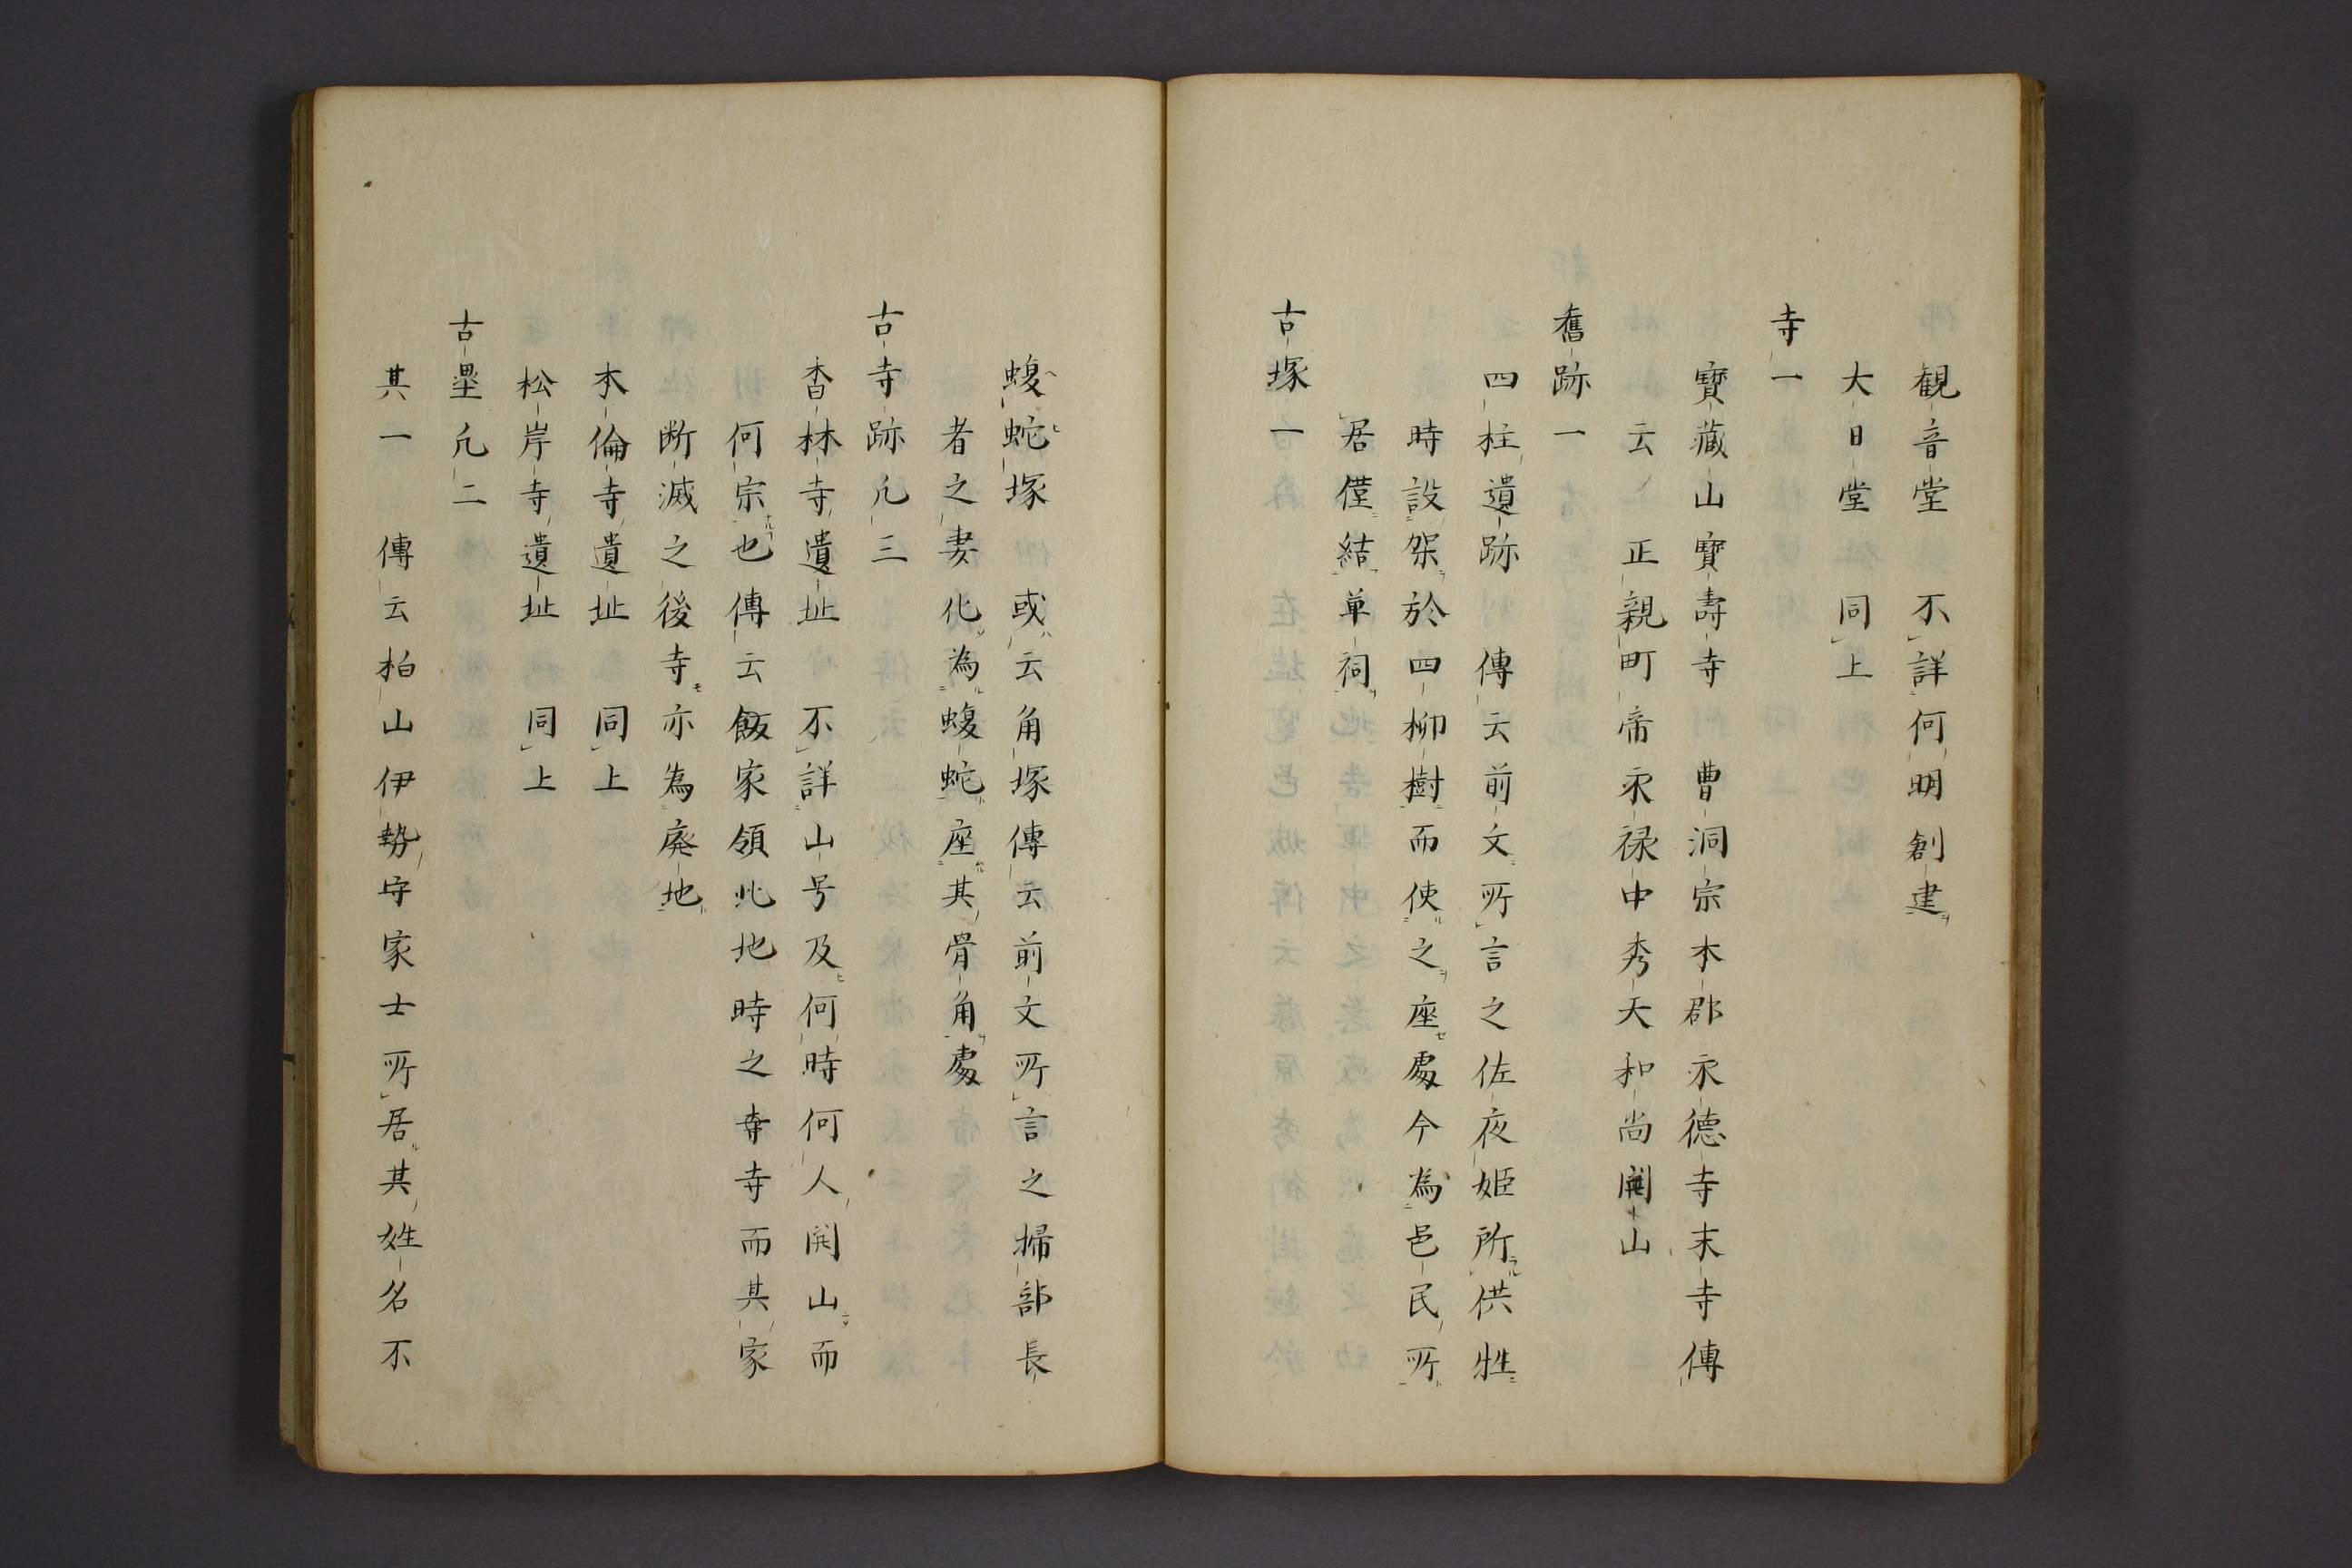 観音堂　不詳何明創建
大日堂　同上
寺一
寶藏山寶壽寺　曹洞宗本郡永德寺末寺傳
云　正親町帝永禄中秀天和尚開山
舊跡一
四柱遺跡　傳云前文所言之佐夜姫所供牲
時設架於四柳樹而使之座處今為邑民所
居僅結草祠
古塚一
蝮蛇塚　或云角塚傳云前文所言之掃部長
者之妻化為蝮蛇座其骨角處
古寺跡凢三
杳林寺遺址　不詳山号及何時何人開山而
何宗也傳云飯家領此地時之寺寺而其家
断滅之後寺亦為廃地
本倫寺遺址　同上
松岸寺遺址　同上
古壘凢二
其一　傳云柏山伊勢守家士所居其姓名不